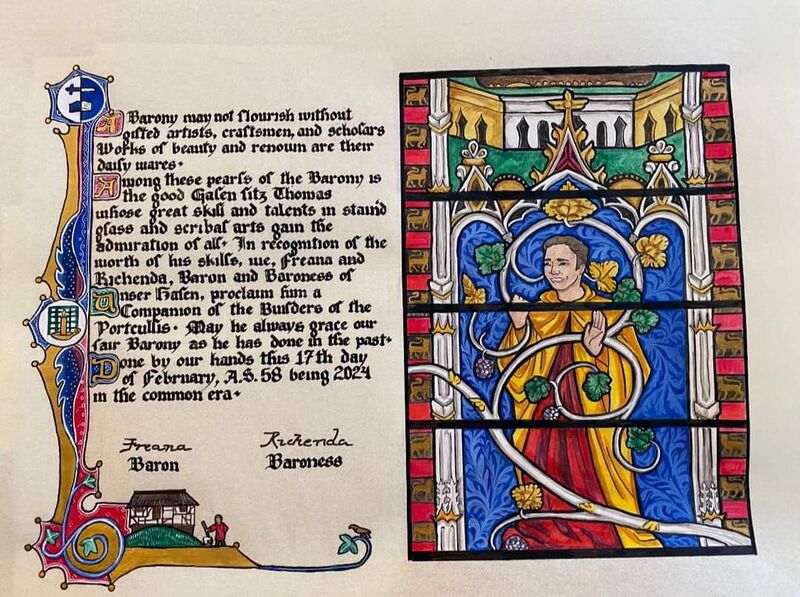 A Barony may not flourish without
gifted artists, craftsmen, and scholars
Works of beauty and renown are their
daily wares.
Among these pearls of the Barony is
the good Galen fitz Thomas
whose great skill and talents in staind
glass and scribal arts gain the
admiration of all. In recognition of the
worth of his skills, we, Freana and
Richenda, Baron and Baroness of
Unser Hafen, proclaim him a
Companion of the Builders of the
Portcullis. May he always grace our
fair Barony as he has done in the past.
Done by our hands this 17th day
of February, A.S. 58 being 2024
in the common era.
Freana Richenda
Baron Baroness